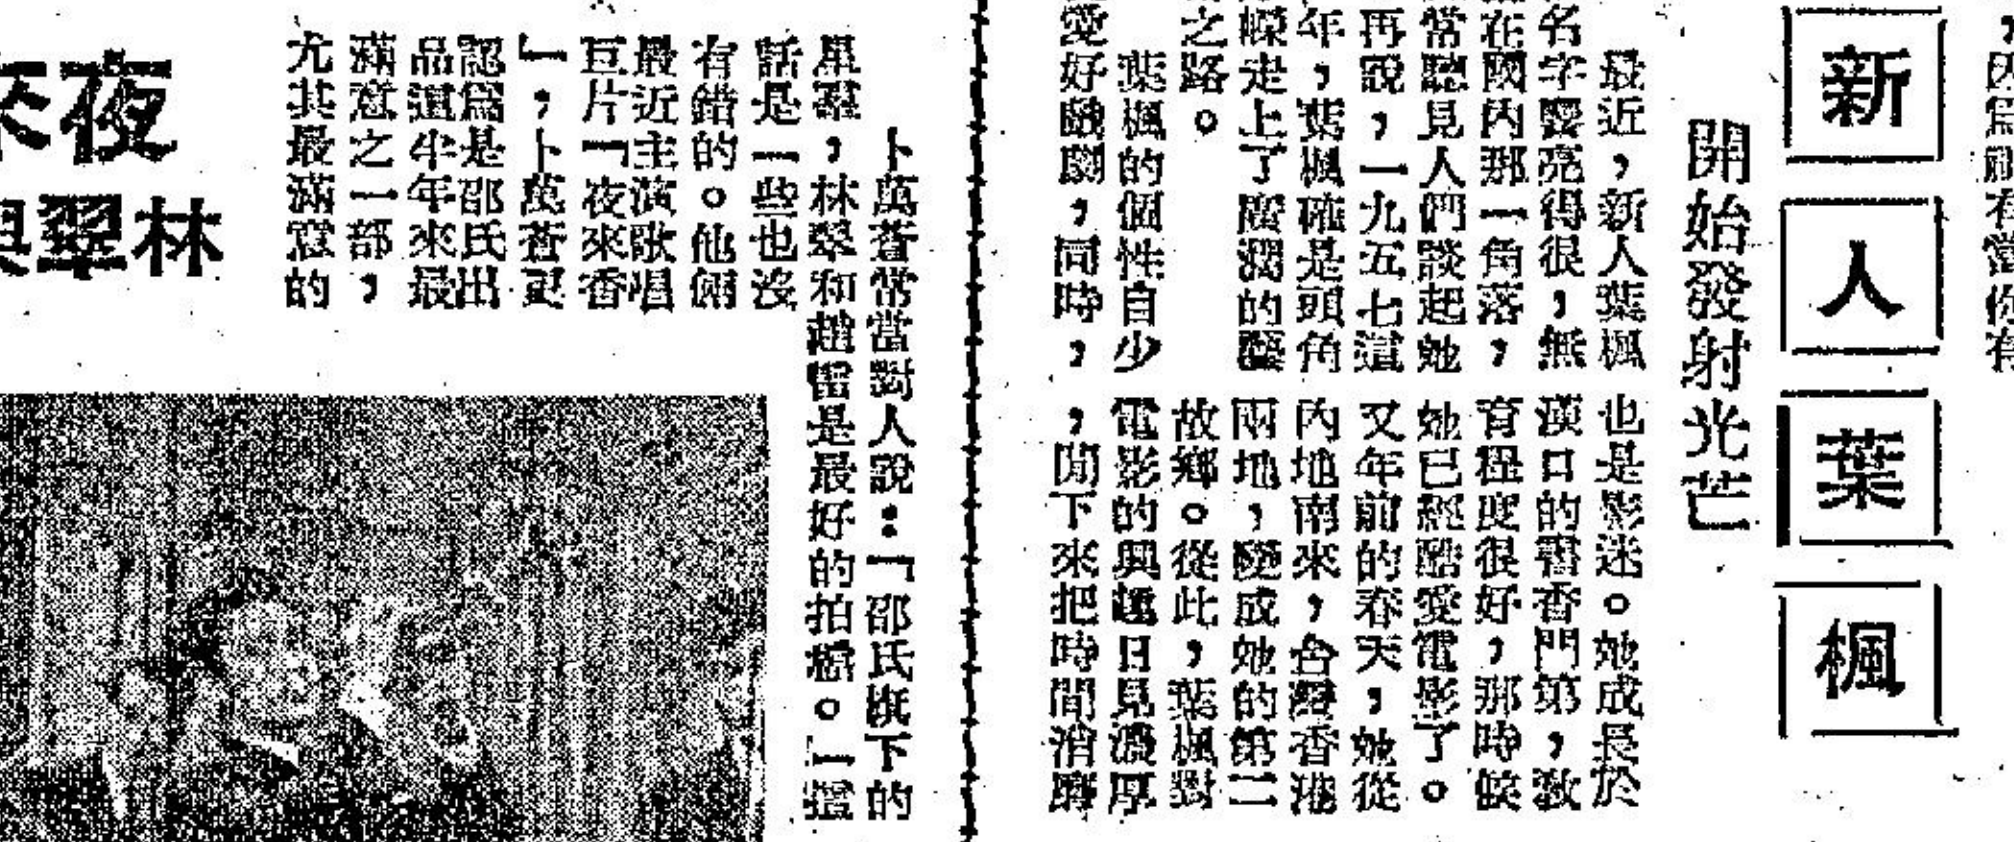 新人葉楓
開始發射光芒
最近，新人葉楓
名字響亮得很，無
在國內那一角落，
常聽見人們談起她
再說，一九五七這
年，葉楓確是頭角
嶸走上了廣濶的藝
之路。
葉楓的個性自少
愛好戲劇，同時，
也是影迷。她成長於
漢口的書香門第，敎
育程度很好，那時候
她已經酷愛電影了。
又年前的春天，她從
內地南來，台灣香港
兩地，變成她的第二
故鄉。從此，葉楓對
電影的興趣日見濃厚
，閒下來把時間消磨
卜萬蒼常當對人說：「邵氏旗下的
星羣，林翠和趙雷是最好的拍檔。」這
話是一些也沒
有錯的。他倆
最近主演歌唱
巨片「夜來香
」，卜萬蒼更
認爲是邵氏出
品這半年來最
滿意之一部，
尤其最滿意的
夜來
林翠與